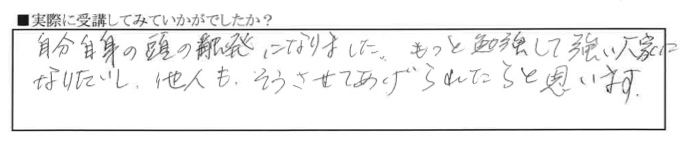 ■実際に受講してみていかがでしたか？
自分自身の頭の融発になりました。もっと勉強して強い人家に
なりたいし、他人も、そうさせてあげられたらと思います。